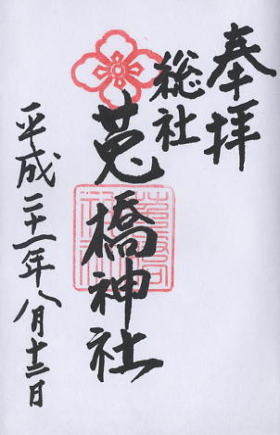 奉拝
総社
菟橋神社
平成二十一年八月十三日